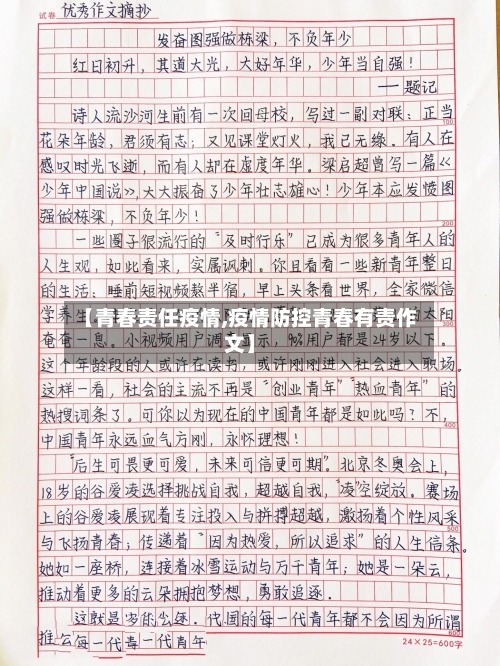 试卷 优秀作文摘抄
发奋图强做栋梁，不负年少
红日初升，其道大光，大好年华，少年当自强！
——题记
诗人流沙河生前有一次回母校，写过一副对联：正当
花朵年龄，君须有志；又见课堂灯火，我已无缘。有人在
感叹时光飞逝，而有人却在虚度年华。梁启超曾写一篇《
少年中国说》，大大振奋了少年壮志雄心！少年本应发愤图
强做栋梁，不负年少！
200
一些圈子很流行的“及时行乐”已成为很多青年人的
人生观，如此看来，实属讽刺。你且看看一些新青年整日
的生活：睡前短视频熬半宿，早上头条看世界，全家微信
学养生
太阳
【青春责任疫情,疫情防控青春有责作
文】
奄奄一息。小视频用户调
示，96%用户都是24岁以下。
这个年龄段的人或许在读书，或许刚刚进入社会进入职场。
这样一看，社会的主流不再是“创业青年”“热血青年”的
热搜词条了。可你以为现在的中国青年都是如此吗？不，
400
中国青年永远血气方刚，永怀理想！
“后生可畏更可爱，未来可信更可期”。北京冬奥会上，
18岁的谷爱凌选择挑战自我，超越自我，“凌”空绽放。赛场
500
上的谷爱凌展现着专注投入与拼搏超越，激扬着个性风采
与飞扬青春；传递着“因为热爱，所以追求”的人生信条。
她如一座桥，连接着冰雪运动与万千青年；她是一朵云，
推动着更多的云朵拥抱梦想，勇敢追逐。
600
这就是岁的少年。代国的每一代青年都不会因为所谓
推么每一代毒一代青年
24×25=600字